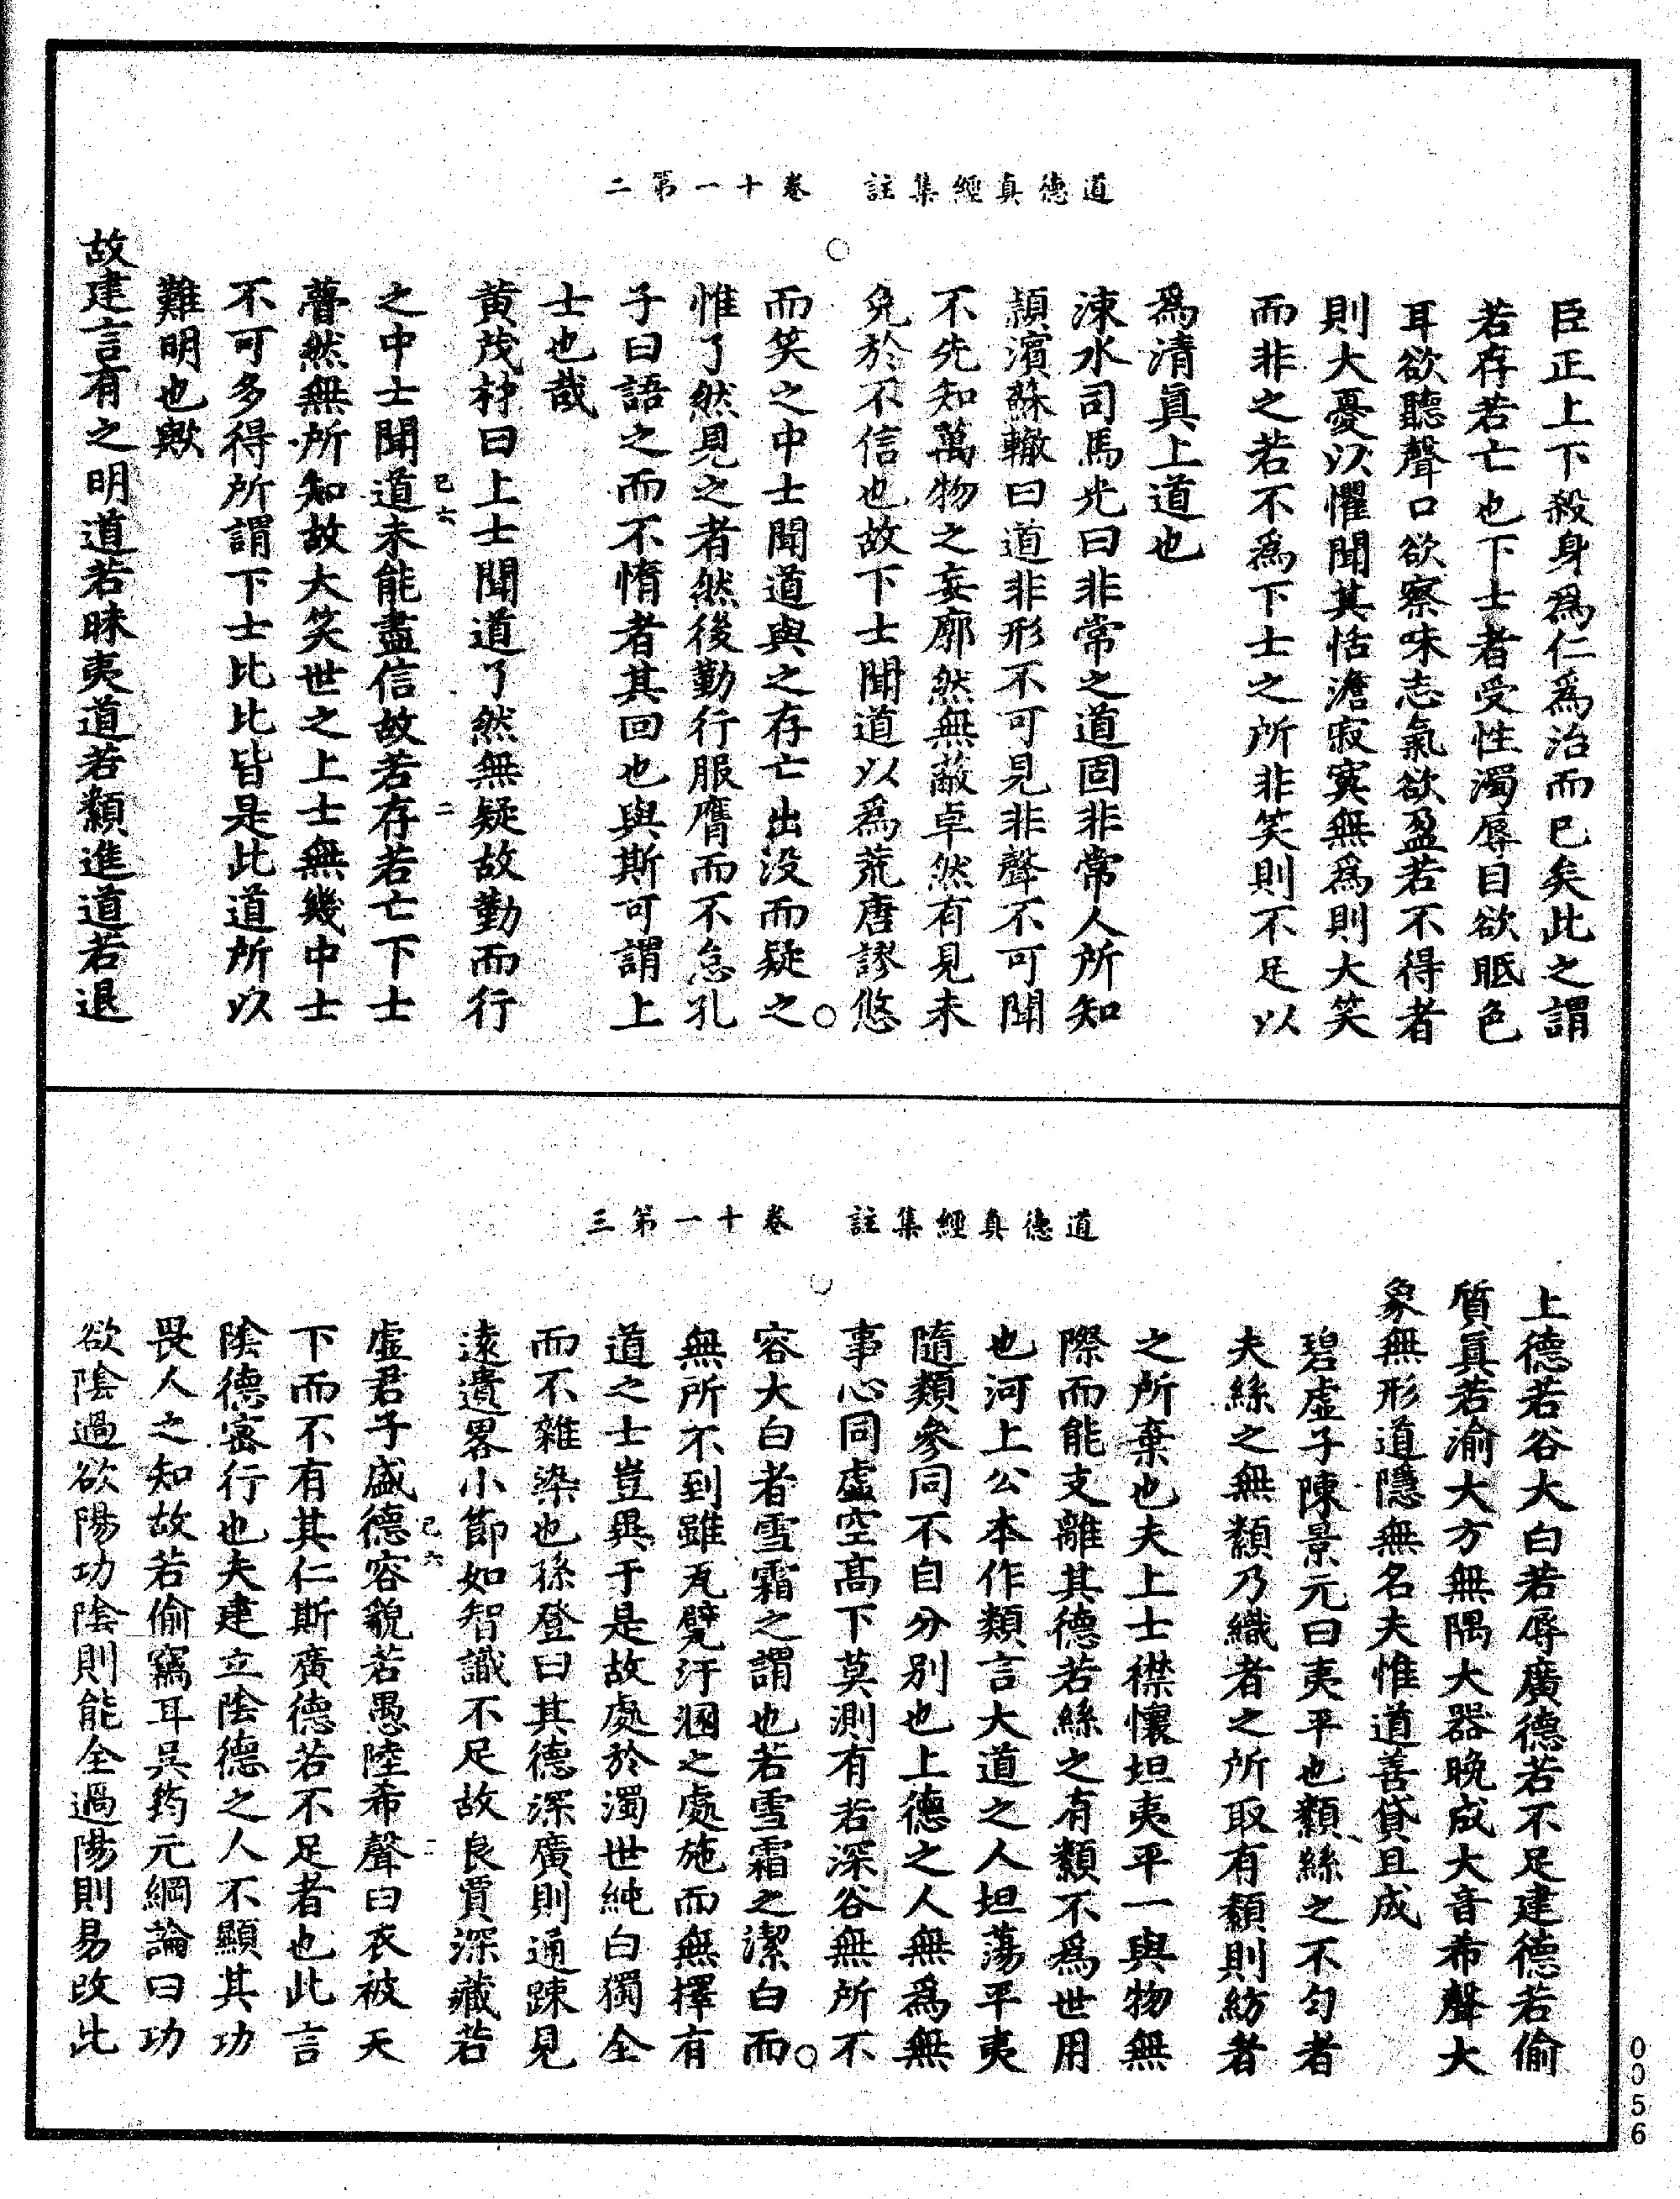 道德真經集註　卷十一第二
臣正上下殺身爲仁爲治而已矣此之謂
若存若亡也下士者受性濁辱目欲眂色
耳欲聽聲口欲察味志氣欲盈若不得者
則大憂以懼聞其恬澹寂寞無爲則大笑
而非之若不爲下士之所非笑則不足以
爲清真上道也
涑水司馬光曰非常之道固非常人所知
潁濱蘇轍曰道非形不可見非聲不可聞
不先知萬物之妄廓然無蔽卓然有見未
免於不信也故下士聞道以爲荒唐謬悠
而笑之中士聞道與之存亡出沒而疑之
惟了然見之者然後勤行服膺而不怠孔
子曰語之而不惰者其回也與斯可謂上
士也哉
黃茂材曰上士聞道了然無疑故勤而行
之中士聞道未能盡信故若存若亡下士
瞢然無所知故大笑世之上士無幾中士
不可多得所謂下士比比皆是此道所以
難明也歟
故建言有之明道若昧夷道若纇進道若退
己六
二
道德真經集註　卷十一第三
上德若谷大白若辱廣德若不足建德若偷
質真若渝大方無隅大器晚成大音希聲大
象無形道隱無名夫惟道善貸且成
碧虛子陳景元曰夷平也纇絲之不勻者
夫絲之無纇乃織者之所取有纇則紡者
之所棄也夫上士襟懷坦夷平一與物無
際而能支離其德若絲之有纇不爲世用
也河上公本作類言大道之人坦蕩平夷
隨類參同不自分別也上德之人無爲無
事心同虛空高下莫測有若深谷無所不
容大白者雪霜之謂也若雪霜之潔白而
無所不到雖瓦甓汙溷之處施而無擇有
道之士豈異于是故處於濁世純白獨全
而不雜染也孫登曰其德深廣則通踈見
遠遺畧小節如智識不足故良賈深藏若
虛君子盛德容貌若愚陸希聲曰衣被天
下而不有其仁斯廣德若不足者也此言
陰德密行也夫建立陰德之人不顯其功
畏人之知故若偷竊耳吳筠元綱論曰功
欲陰過欲陽功陰則能全過陽則易改此
己六
二
0056